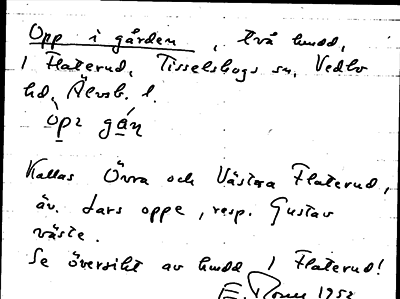 Opp i gården, två hmdd,
I Flaterud, Tisselskogs sn, Vedbo
hd, Älvsb. l.
òpz gán
Kallas Övra och Västra Flaterud,
äv. Lars oppe, resp. Gustav
väste.
Se översikt av hmdd I Flaterud!
1952